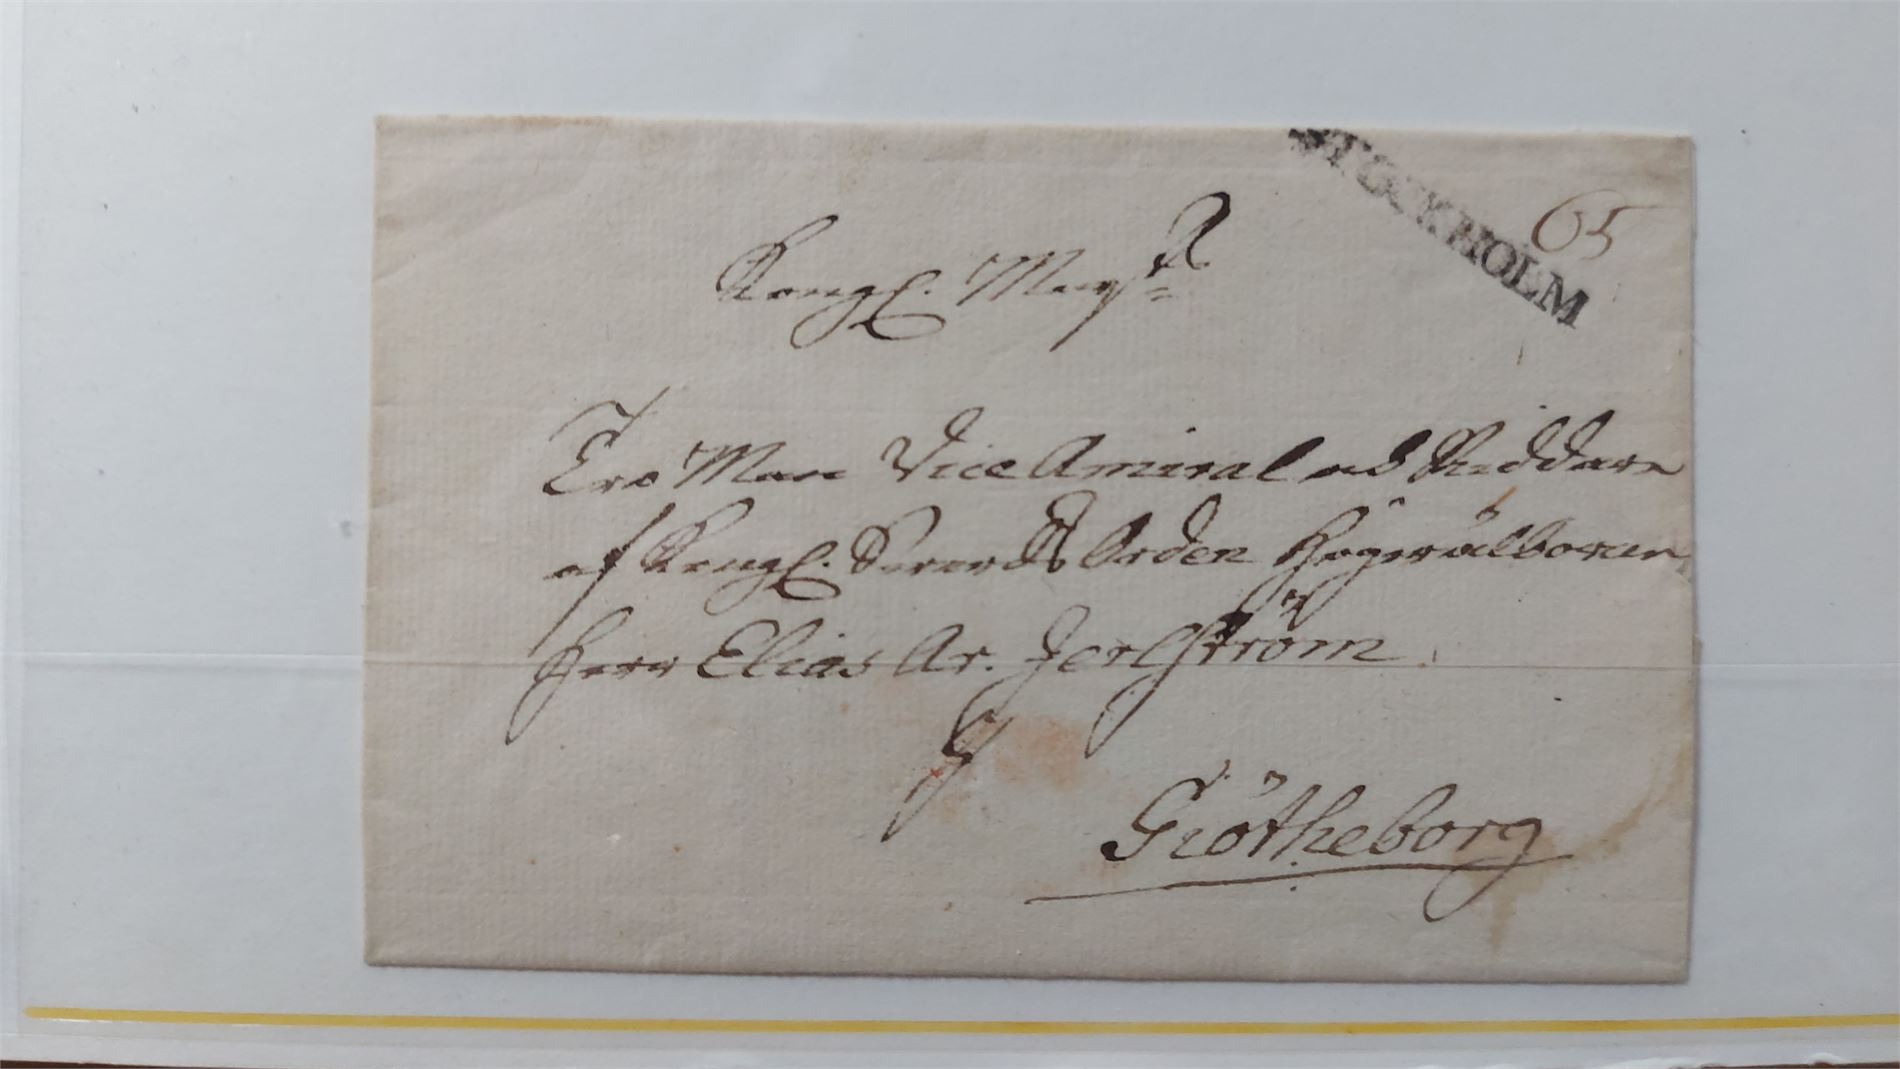 STOCKHOLM
65
Kongl. Mayts
Tro Man Vice Amiral och Riddare
af Kongl. Swerds Orden Högwälborne
Herr Elias Ar. Jerlström
Götheborg